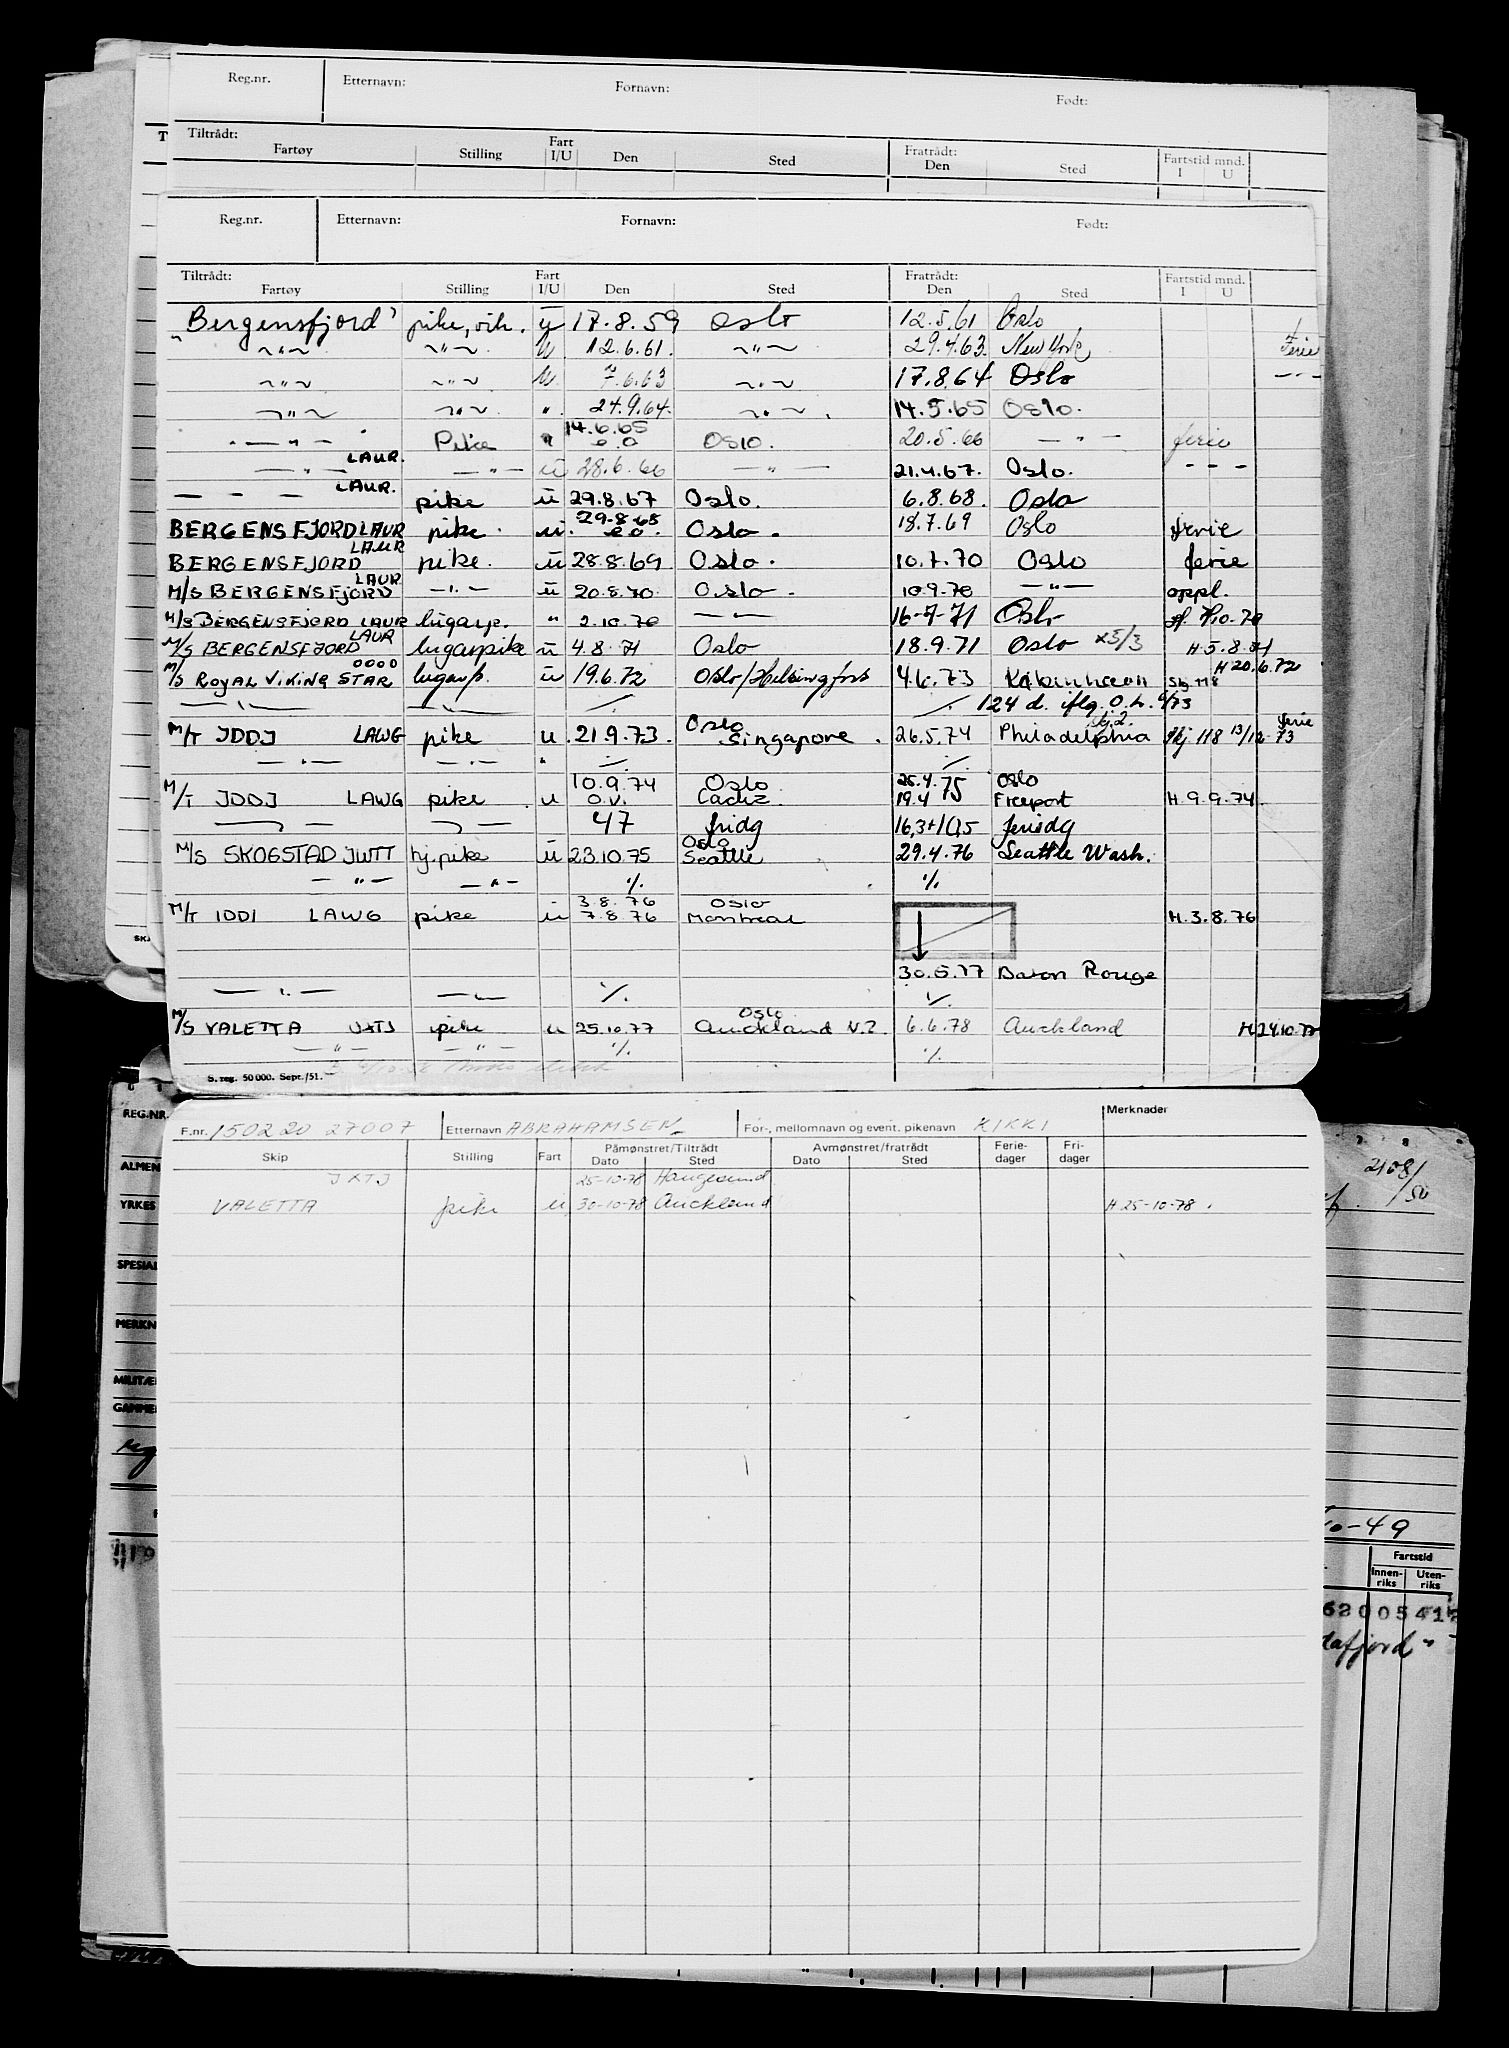 Reg.nr. Etternavn: Fornavn: Født:
Tiltrådt: Fratrådt: Fartstid mnd.
Fartøy Stilling Fart I/U Den Sted Den Sted I U
Reg.nr. Etternavn: Fornavn: Født:
Tiltrådt: Fratrådt: Fartstid mnd.
Fartøy Stilling Fart I/U Den Sted Den Sted I U
"Bergensfjord" pike, vik. u 17.8.59 Oslo 12.5.61 Oslo
~"~ ~"~ u 12.6.61. ~"~ 29.4.63. New York Ferie
~"~ ~"~ u 7.6.63 ~"~ 17.8.64 Oslo -"-
~"~ ~"~ " 24.9.64. ~"~ 14.5.65 Oslo.
14.6.65
— " — Pike " e.o Oslo. 20.5.66 — " — ferie
LAUR.
— " — — " — u 28.6.66 — " — 21.4.67. Oslo. - - -
LAUR.
— — — pike u 29.8.67 Oslo. 6.8.68. Oslo
29.8.68
BERGENSFJORD LAUR pike. u. e.o. Oslo. 18.7.69 Oslo ferie
LAUR
BERGENSFJORD pike. u 28.8.69 Oslo. 10.7.70 Oslo ferie
LAUR
M/S BERGENSFJORD —"— u 20.8.70. Oslo. 10.9.70 —"— oppl.
M/S BERGENSFJORD LAUR lugarp. " 2.10.70 — — 16-7-71 Oslo
LAUR
M/S BERGENSFJORD lugarpike u 4.8.71 Oslo 18.9.71 Oslo x5/3 H.5.8.71
oooo H 20.6.72
M/S ROYAL VIKING STAR lugarp. u 19.6.72 Oslo/Helsingfors 4.6.73 København
—"— —"— ./. ./. 124 d. iflg. O.L.
Oslo
M/T IDDI LAWG pike u 21.9.73. Singapore. 26.5.74 Philadelphia 118 13/12-73 ferie
—"— —"— " ./. ./.
10.9.74 Oslo 25.4.75 Oslo
M/T IDDI LAWG pike. u o.v. Cadiz 19.4 75 Freeport H.9.9.74.
—"— —"— 47 fridg 16,3+10,5 feriedg
Oslo
M/S SKOGSTAD JWTT hj.pike u 23.10.75 Seattle 29.4.76 Seattle Wash.
— " — — " — ./. ./.
3.8.76 Oslo
M/T IDDI LAWG pike u 7.8.76 Montreal H.3.8.76
30.5.77 Baton Rouge
—"— —"— ./. ./.
Oslo
M/S VALETTA JXTJ pike u 25.10.77 Auckland N.Z. 6.6.78 Auckland H 24.10.77
—"— —"— ./. ./.
S. reg. 50 000. Sept./51.
F.nr. 150220 27007 Etternavn ABRAHAMSEN For-, mellomnavn og event. pikenavn KIKKI Merknader
Skip Stilling Fart Påmønstret/Tiltrådt Dato Sted Avmønstret/fratrådt Dato Sted Feriedager Fridager
JXTJ 25-10-78 Haugesund
VALETTA pike u 30-10-78 Auckland H 25-10-78.
REG.NR.
ALMEN
YRKES
SPESIAL
MERKN
MILITÆ
GAMMEL
2108/
/50
-49
Fartstid
Innenriks Utenriks
6200541